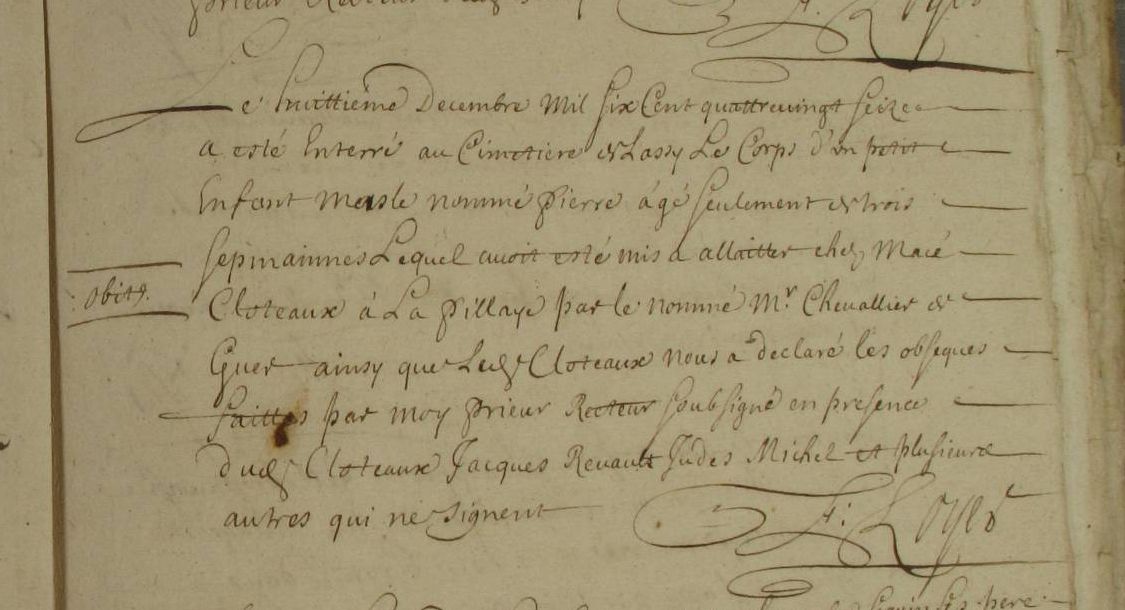 prieur Recteur
F. Loyer
Le huittiéme Decembre Mil six Cent quattrevingt seize
a esté Enterré au Cimetiere de Lassy Le Corps d'un petit
Enfant masle nommé pierre âgé seulement de trois
sepmainnes Lequel avoit esté mis a allaitter chez Macé
obitt.
Cloteaux à La pillaye par le nommé Mr Chevallier de
Guer ainsy que Ledt Cloteaux nous a declaré les obseques
faittes par moy prieur Recteur soubsigné en presence
dudt Cloteaux Jacques Renault Judes Michel et plusieurs
autres qui ne signent
F: Loyer